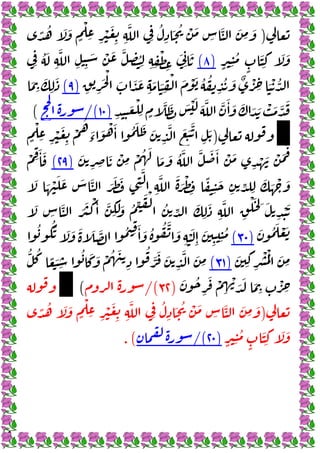 تعالى ( وَمِنَ النَّاسِ مَنْ يُجَادِلُ فِي اللَّهِ بِغَيْرِ عِلْمٍ وَلَا هُدًى
وَلَا كِتَابٍ مُنِيرٍ (٨) ثَانِيَ عِطْفِهِ لِيُضِلَّ عَنْ سَبِيلِ اللَّهِ لَهُ فِي
الدُّنْيَا خِزْيٌ وَنُذِيقُهُ يَوْمَ الْقِيَامَةِ عَذَابَ الْحَرِيقِ (٩) ذَلِكَ بِمَا
قَدَّمَتْ يَدَاكَ وَأَنَّ اللَّهَ لَيْسَ بِظَلَّامٍ لِلْعَبِيدِ (١٠)/سورة الحج )
وقوله تعالى ( بَلِ اتَّبَعَ الَّذِينَ ظَلَمُوا أَهْوَاءَهُمْ بِغَيْرِ عِلْمٍ
فَمَنْ يَهْدِي مَنْ أَضَلَّ اللَّهُ وَمَا لَهُمْ مِنْ نَاصِرِينَ (٢٩) فَأَقِمْ
وَجْهَكَ لِلدِّينِ حَنِيفًا فِطْرَةَ اللَّهِ الَّتِي فَطَرَ النَّاسَ عَلَيْهَا لَا
تَبْدِيلَ لِخَلْقِ اللَّهِ ذَلِكَ الدِّينُ الْقَيِّمُ وَلَكِنَّ أَكْثَرَ النَّاسِ لَا
يَعْلَمُونَ (٣٠) مُنِيبِينَ إِلَيْهِ وَاتَّقُوهُ وَأَقِيمُوا الصَّلَاةَ وَلَا تَكُونُوا
مِنَ الْمُشْرِكِينَ (٣١) مِنَ الَّذِينَ فَرَّقُوا دِينَهُمْ وَكَانُوا شِيَعًا كُلُّ
حِزْبٍ بِمَا لَدَيْهِمْ فَرِحُونَ (٣٢)/سورة الروم ) وقوله
تعالى ( وَمِنَ النَّاسِ مَنْ يُجَادِلُ فِي اللَّهِ بِغَيْرِ عِلْمٍ وَلَا هُدًى
وَلَا كِتَابٍ مُنِيرٍ (٢٠)/سورة لقمان ) .